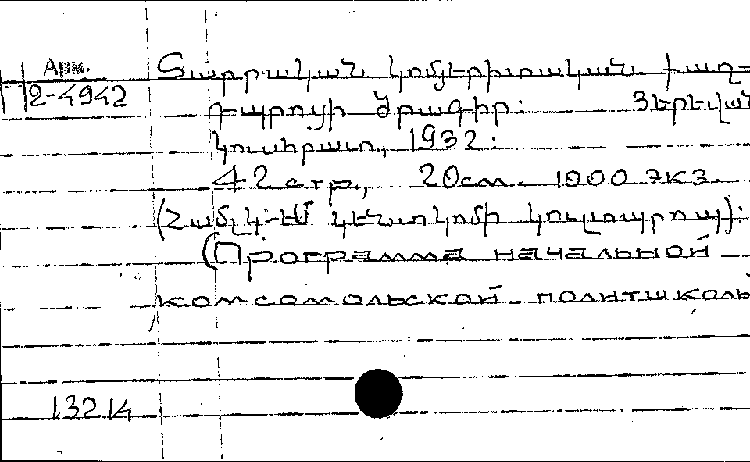 Арм.
П 2-4942
Տարրական կոմյերիտական քաղ-
դպրոցի ծրագիր: Յերեվան
Կուսհրատ, 1932:
42 стр., 20см. 1000 экз.
(ՀամԼԿ-ԵՄ կենտկոմի կուլտպրոպ):
(Программа начальной
комсомольской политшколы
13214